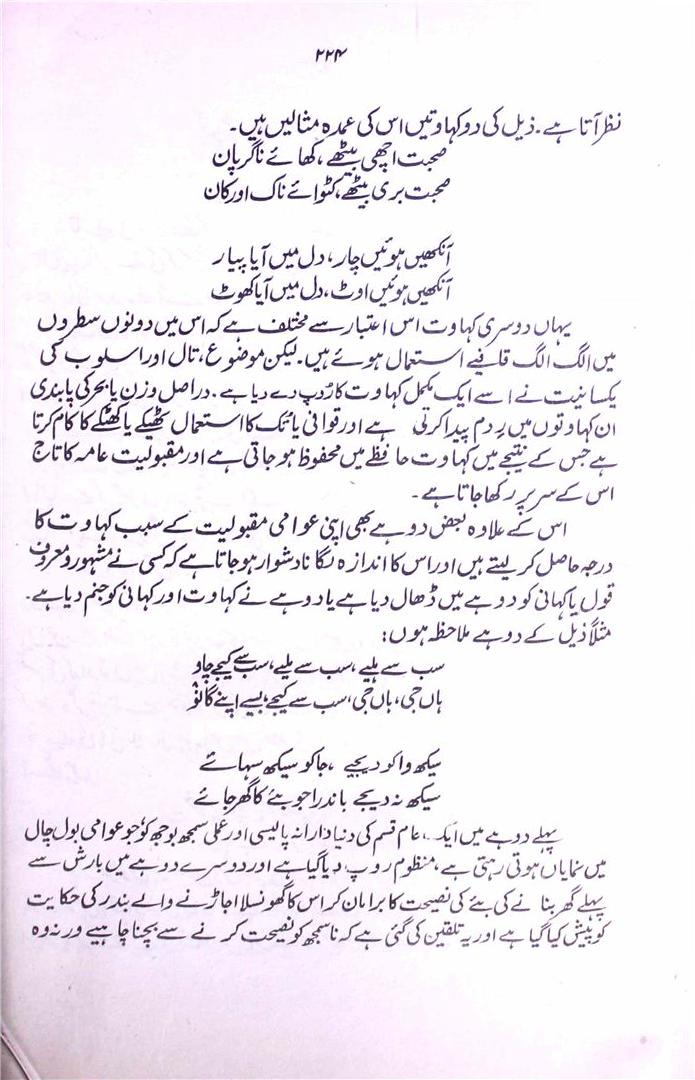 ۲۲۴
نظر آتا ہے۔ ذیل کی دو کہاوتیں اس کی عمدہ مثالیں ہیں۔
صحبت اچھی بیٹھے، کھائے ناگر پان
صحبت بری بیٹھے، کٹوائے ناک اور کان
آنکھیں ہوئیں چار، دل میں آیا پیار
آنکھیں ہوئیں اوٹ، دل میں آیا کھوٹ
یہاں دوسری کہاوت اس اعتبار سے مختلف ہے کہ اس میں دونوں سطروں
میں الگ الگ قافیے استعمال ہوئے ہیں۔ لیکن موضوع، تال اور اسلوب کی
یکسانیت نے اسے ایک مکمل کہاوت کا رُوپ دے دیا ہے۔ دراصل وزن یا بحر کی پابندی
ان کہاوتوں میں رِدم پیدا کرتی ہے اور قوافی یا تُک کا استعمال ٹھیکے یا کھٹکے کا کام کرتا
ہے جس کے نتیجے میں کہاوت حافظے میں محفوظ ہو جاتی ہے اور مقبولیت عامہ کا تاج
اس کے سر پر رکھا جاتا ہے۔
اس کے علاوہ بعض دوہے بھی اپنی عوامی مقبولیت کے سبب کہاوت کا
درجہ حاصل کر لیتے ہیں اور اس کا اندازہ لگانا دشوار ہو جاتا ہے کہ کسی نے مشہور و معروف
قول یا کہانی کو دوہے میں ڈھال دیا ہے یا دوہے نے کہاوت اور کہانی کو جنم دیا ہے۔
مثلاً ذیل کے دوہے ملاحظہ ہوں:
سب سے ہلیے، سب سے ملیے، سب سے کیجے چاو
ہاں جی، ہاں جی، سب سے کیجے، بسیے اپنے گانوٗ
سیکھ واکو دیجیے، جاکو سیکھ سہائے
سیکھ نہ دیجے باندرا جو بئے کا گھر جائے
پہلے دوہے میں ایک عام قسم کی دنیا دارانہ پالیسی اور عملی سمجھ بوجھ کو، جو عوامی بول چال
میں نمایاں ہوتی رہتی ہے، منظوم روپ دیا گیا ہے اور دوسرے دوہے میں بارش سے
پہلے گھر بنانے کی بئے کی نصیحت کا برا مان کر اس کا گھونسلا اجاڑنے والے بندر کی حکایت
کو پیش کیا گیا ہے اور یہ تلقین کی گئی ہے کہ ناسمجھ کو نصیحت کرنے سے بچنا چاہیے ورنہ وہ